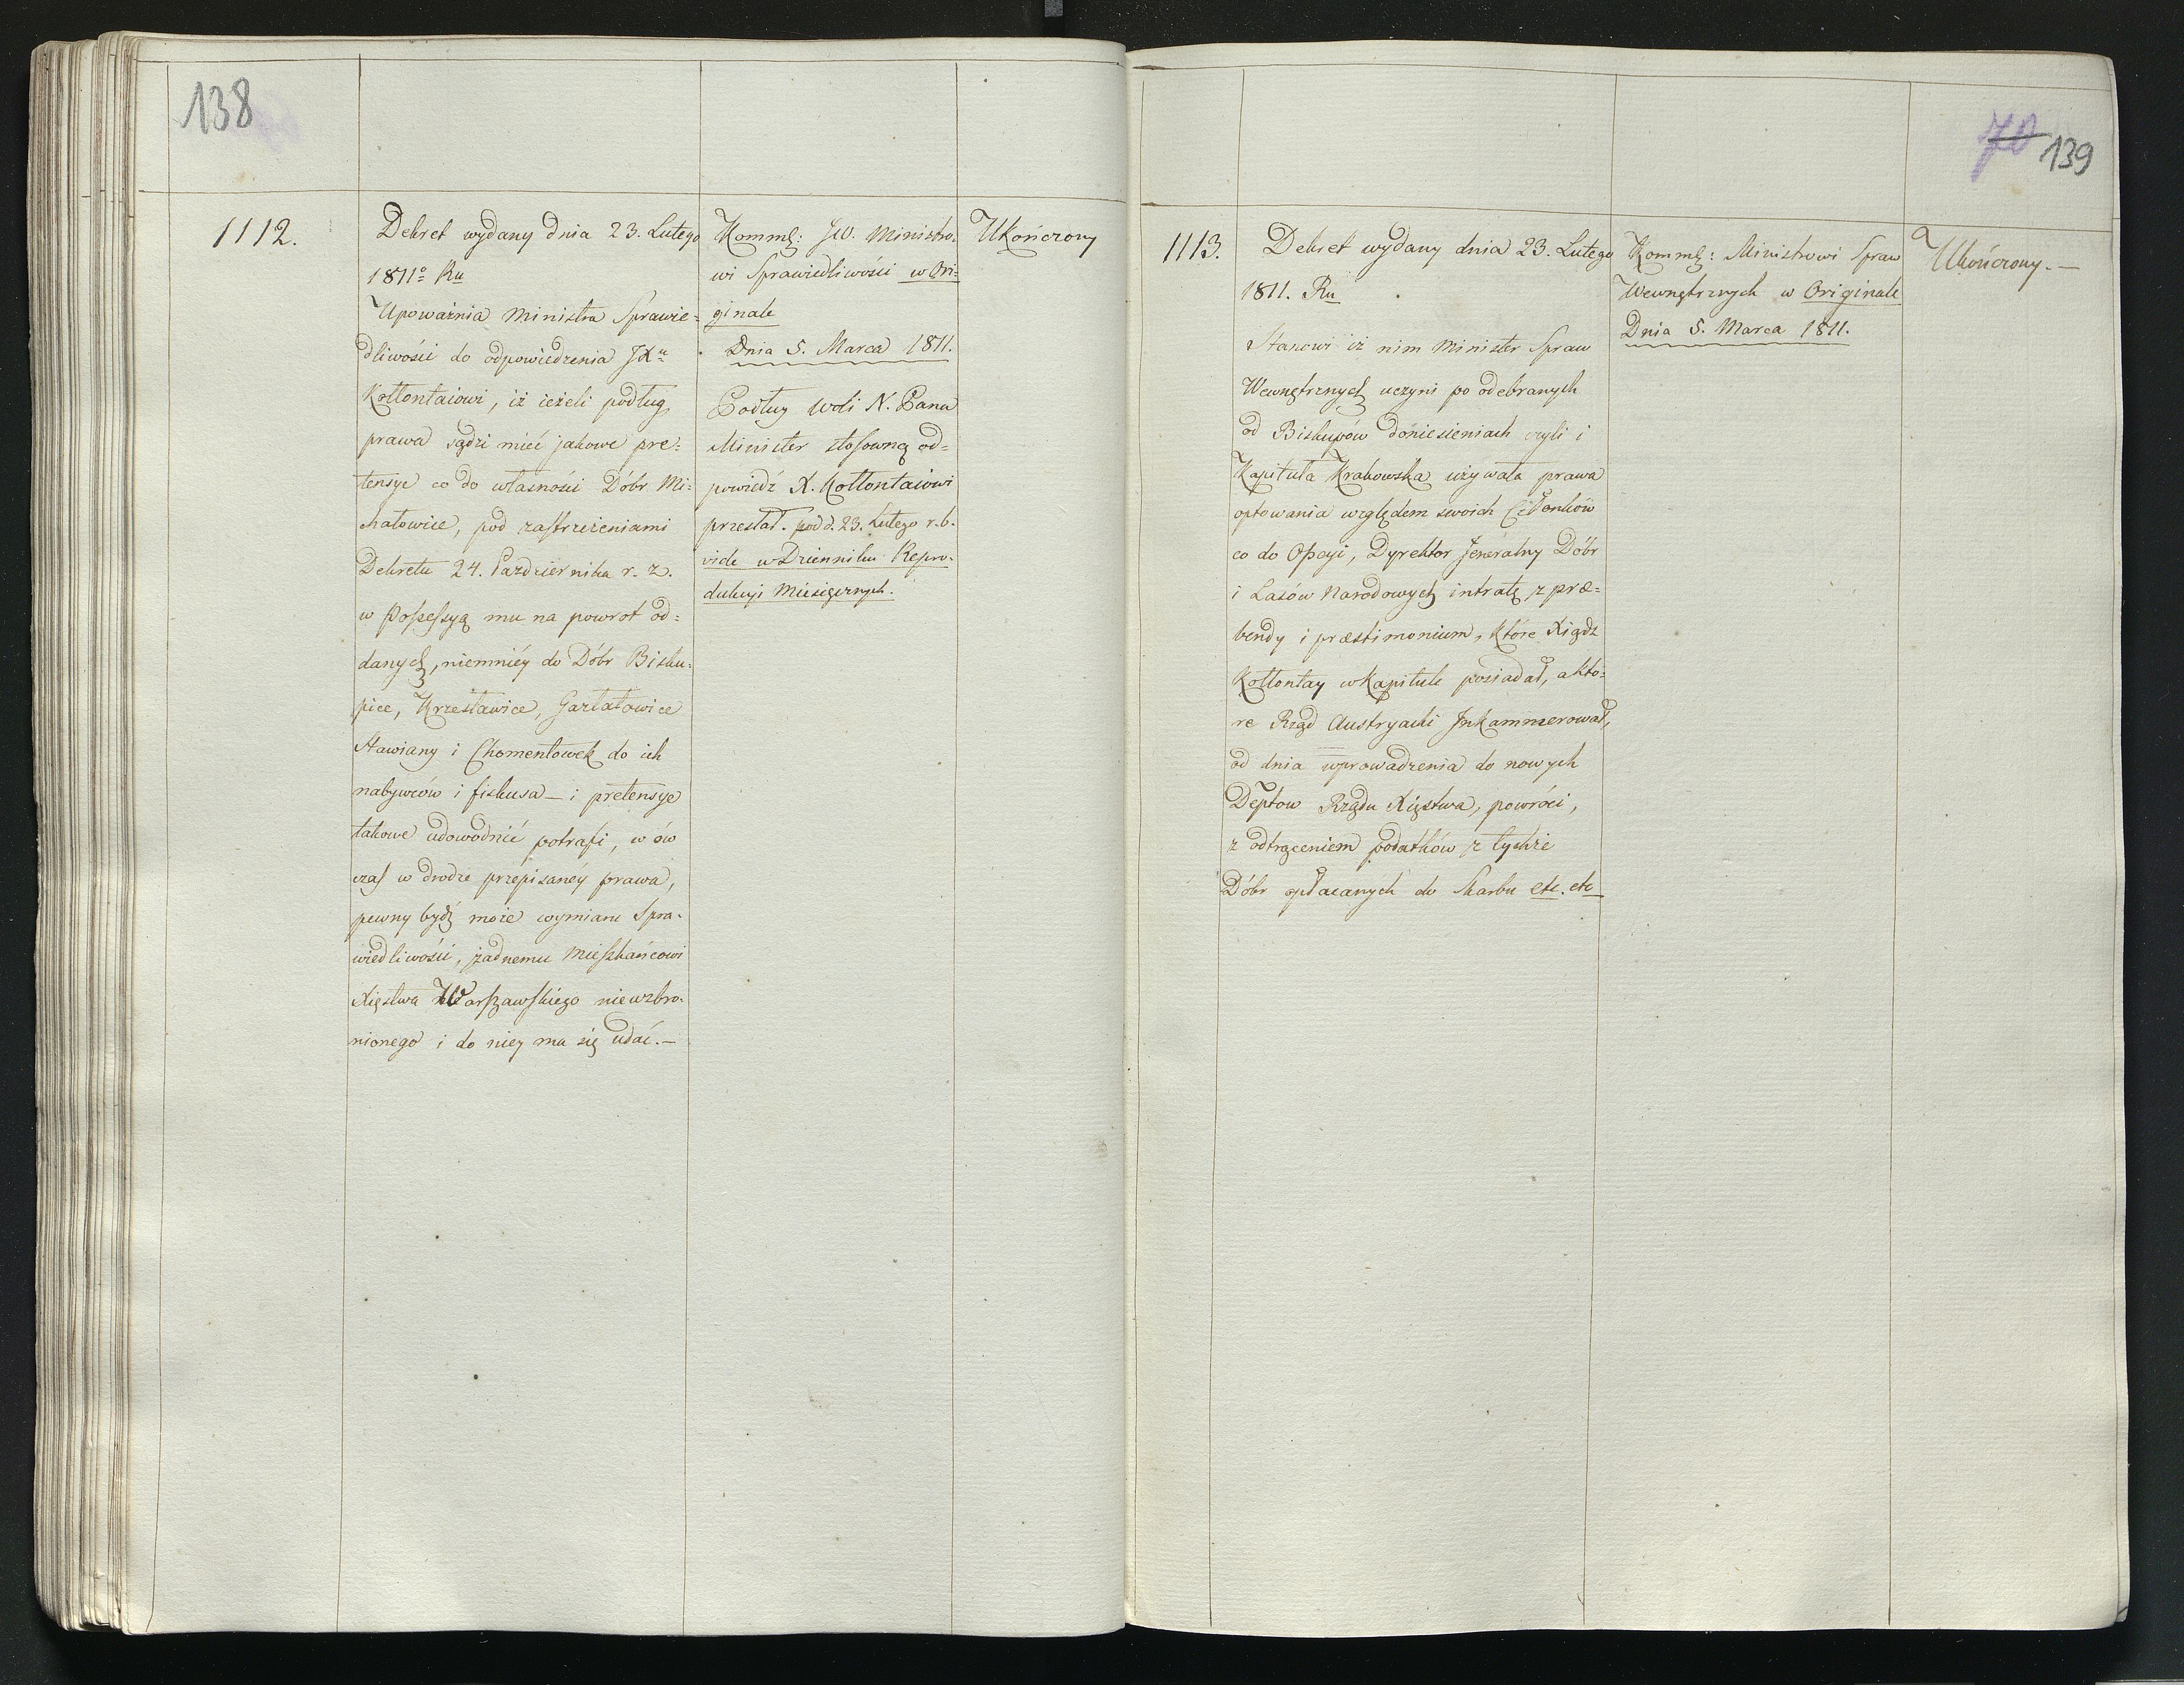 138
1112.
Dekret wydany dnia 23. Lutego
1811º Ru
Upoważnia Ministra Sprawie=
dliwości do odpowiedzenia JXu
Kołłontaiowi, iż ieżeli podług
prawa sądzi mieć jakowe pre=
tensye co do własności Dóbr Mi=
chałowice, pod zastrzeżeniami
Dekretu 24. Października r. z.
w Possessyą mu na powrot od=
danych, niemniéy do Dóbr Bisku=
pice, Krzesławice, Gartatowice
Stawiany i Chomentowek do ich
nabywców i fiskusa — i pretensye
takowe udowodnić potrafi, w ów
czas w drodze przepisanéy prawa,
pewny bydź może wymiaru Spra-
wiedliwości, żadnemu Mieszkańcowi
Xięstwa Warszawskiego niewzbro-
nionego i do niey ma się udać. —
Kommę: JW. Ministro-
wi Sprawiedliwości w Ori=
ginale
Dnia 5. Marca 1811.
Podług woli N. Pana
Minister stosowną od=
powiedź X. Kołłontaiowi
przesłał. pod d. 23. Lutego r. b.
vide w Dzienniku Repro-
dukcyi Miesięcznych.
Ukończony
70 139
1113.
Dekret wydany dnia 23. Lutego
1811. Ru
Stanowi iż nim Minister Spraw
Wewnętrznych uczyni po odebranych
od Biskupów doniesieniach czyli i
Kapituła Krakowska używała prawa
optowania względem swoich Członków
co do Opcyi, Dyrektor Jeneralny Dóbr
i Lasów Narodowych intratę z præ=
bendy i præstimonium, które Xiądz
Kołłontay w Kapitule posiadał, a któ=
re Rząd Austryacki Inkammerował,
od dnia wprowadzenia do nowych
Deptow Rządu Xięstwa, powróci,
z odtrąceniem podatków z tychże
Dóbr opłacanych do Skarbu etc. etc
Kommę: Ministrowi Spraw
Wewnętrznych w Originale
Dnia 5. Marca 1811.
Ukończony. —